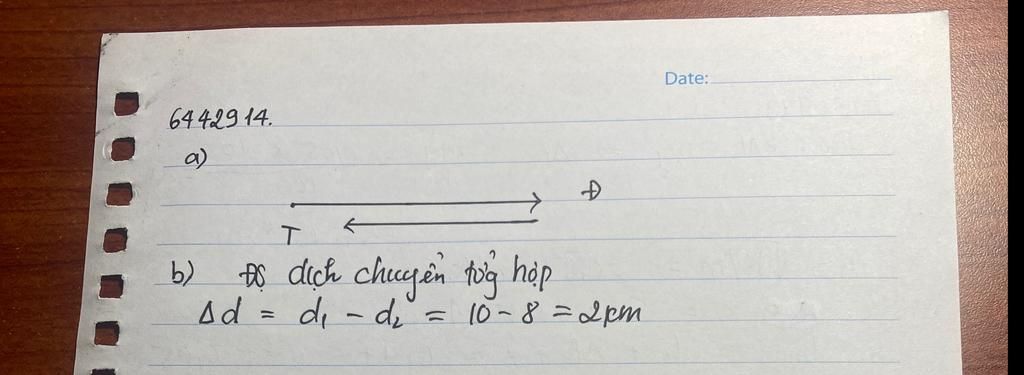 Date:
6442914.
a)
Đ
T
b) Độ dịch chuyển tổg hợp
Δd = d₁ - d₂ = 10 - 8 = 2km